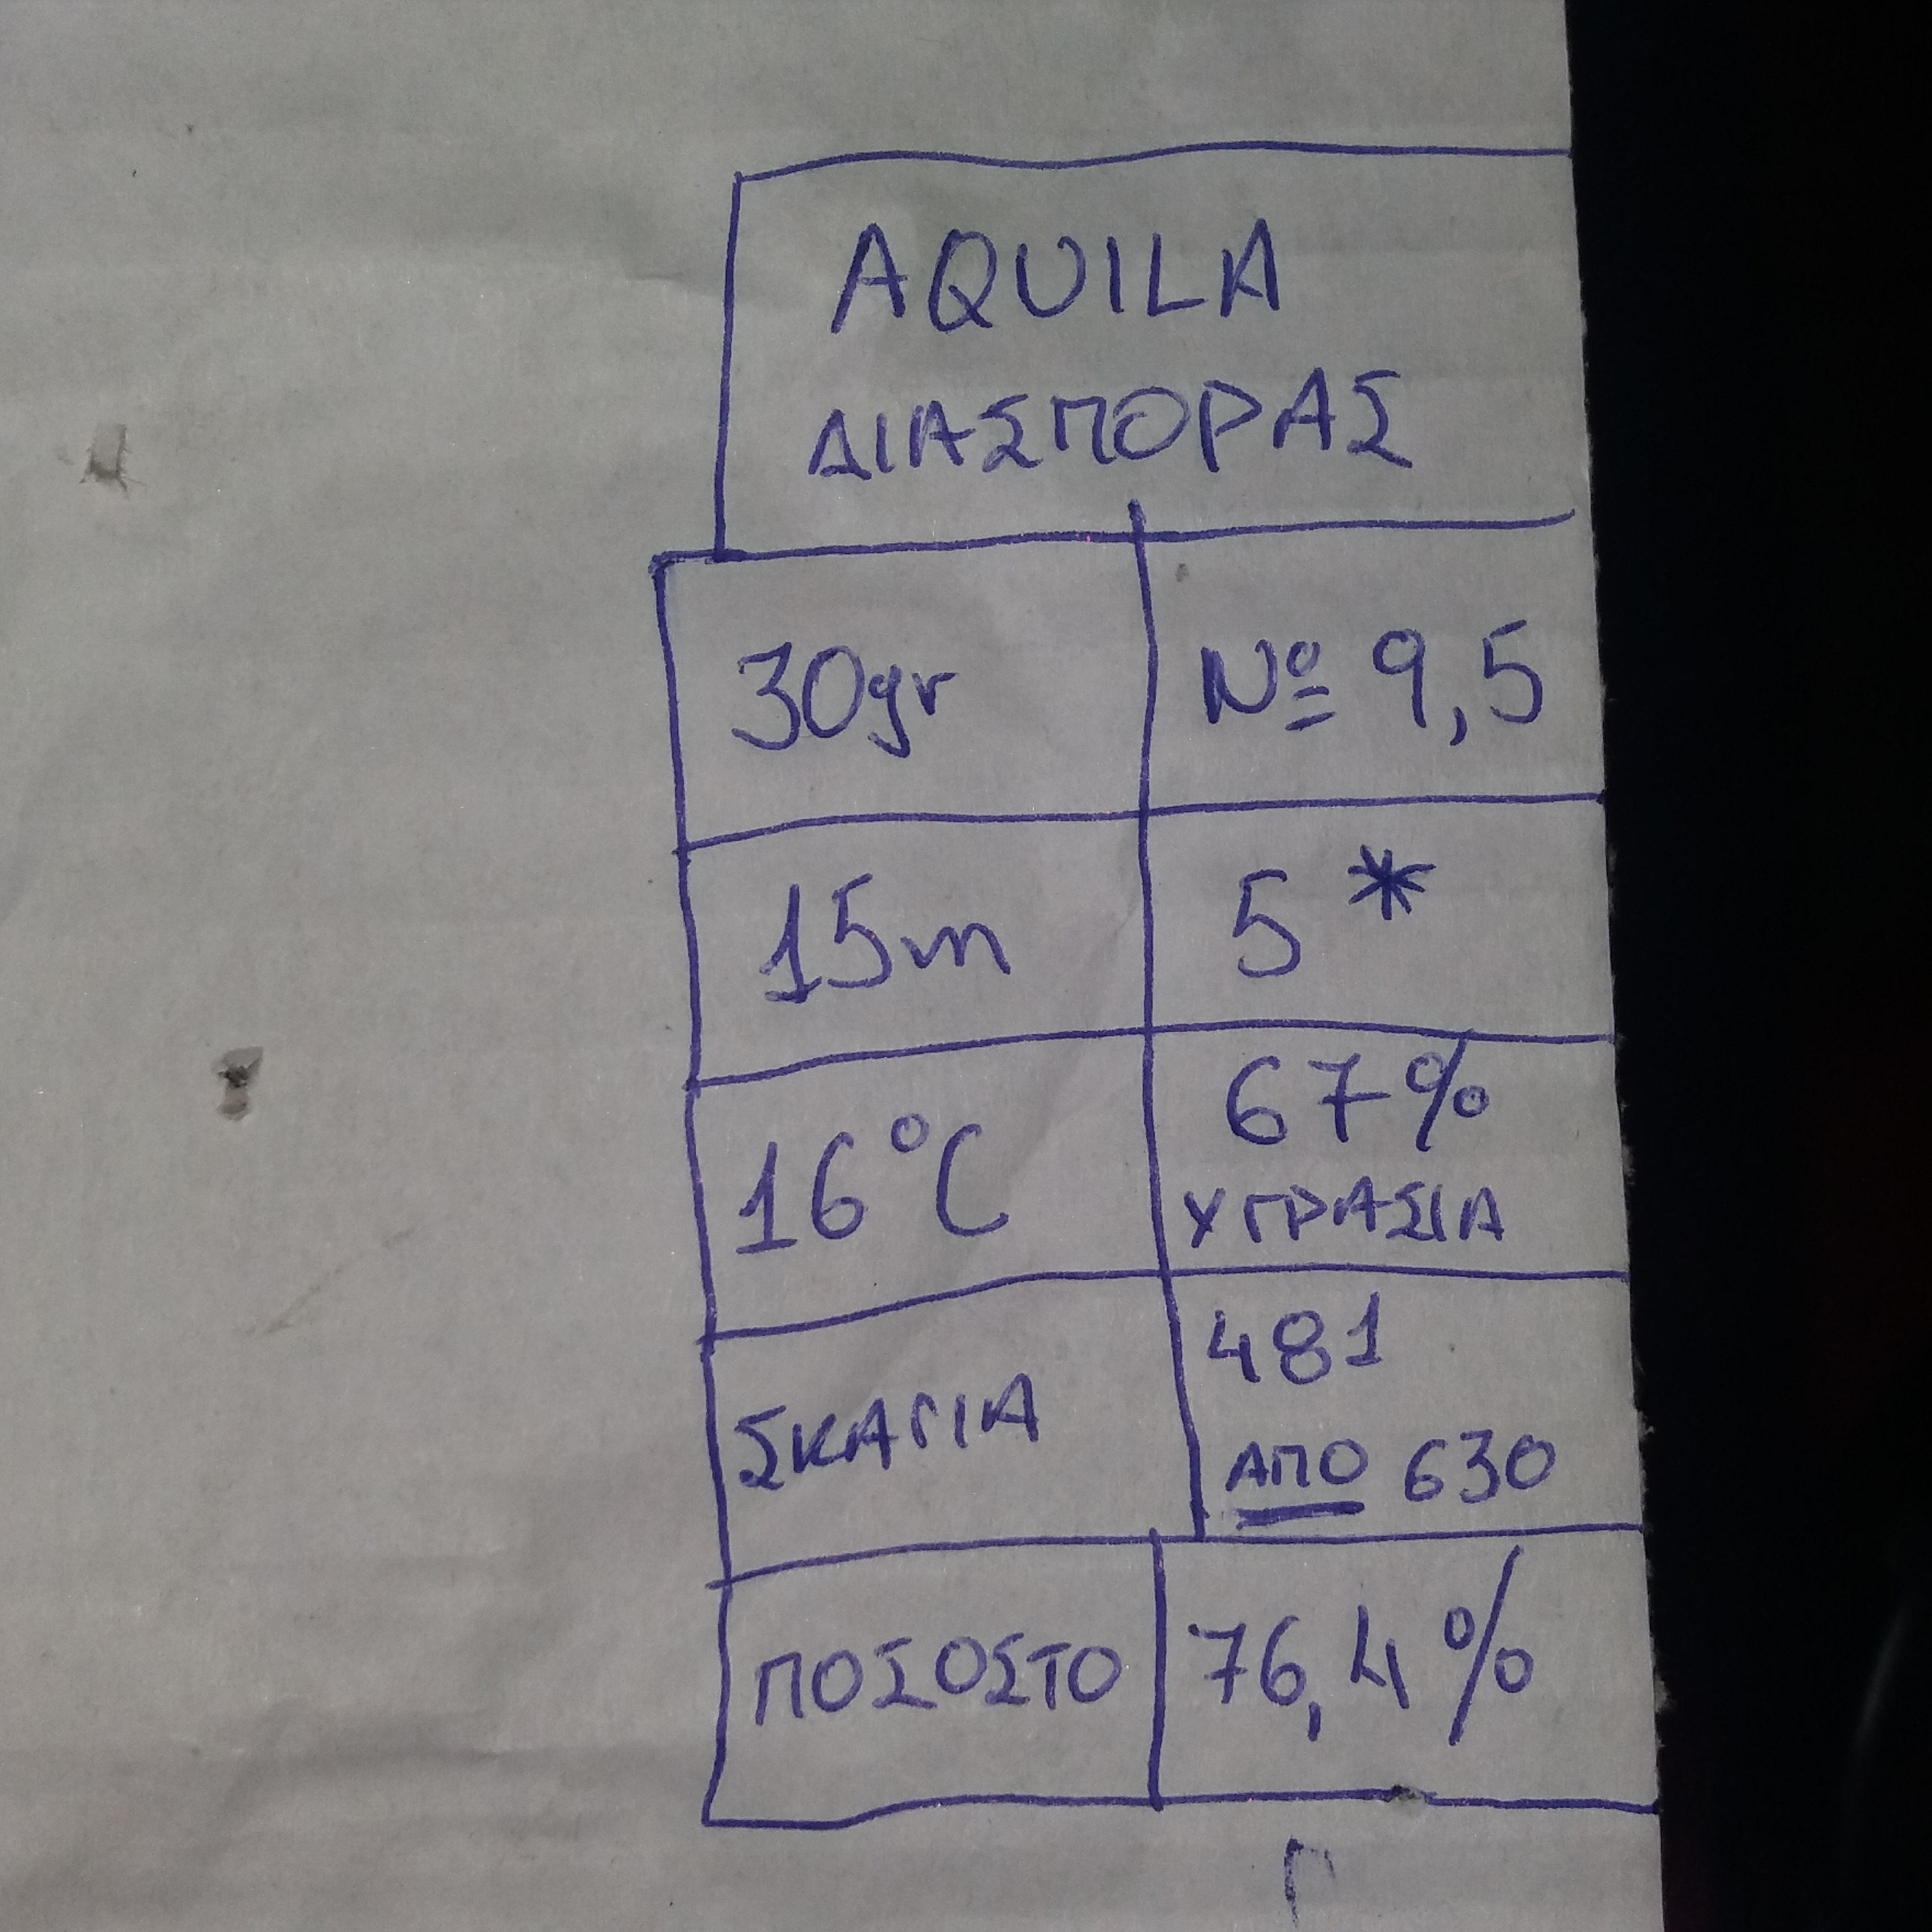 AQUILA
ΔΙΑΣΠΟΡΑΣ
30gr № 9,5
15m 5*
16°C 67%
ΥΓΡΑΣΙΑ
ΣΚΑΓΙΑ 481
ΑΠΟ 630
ΠΟΣΟΣΤΟ 76,4%